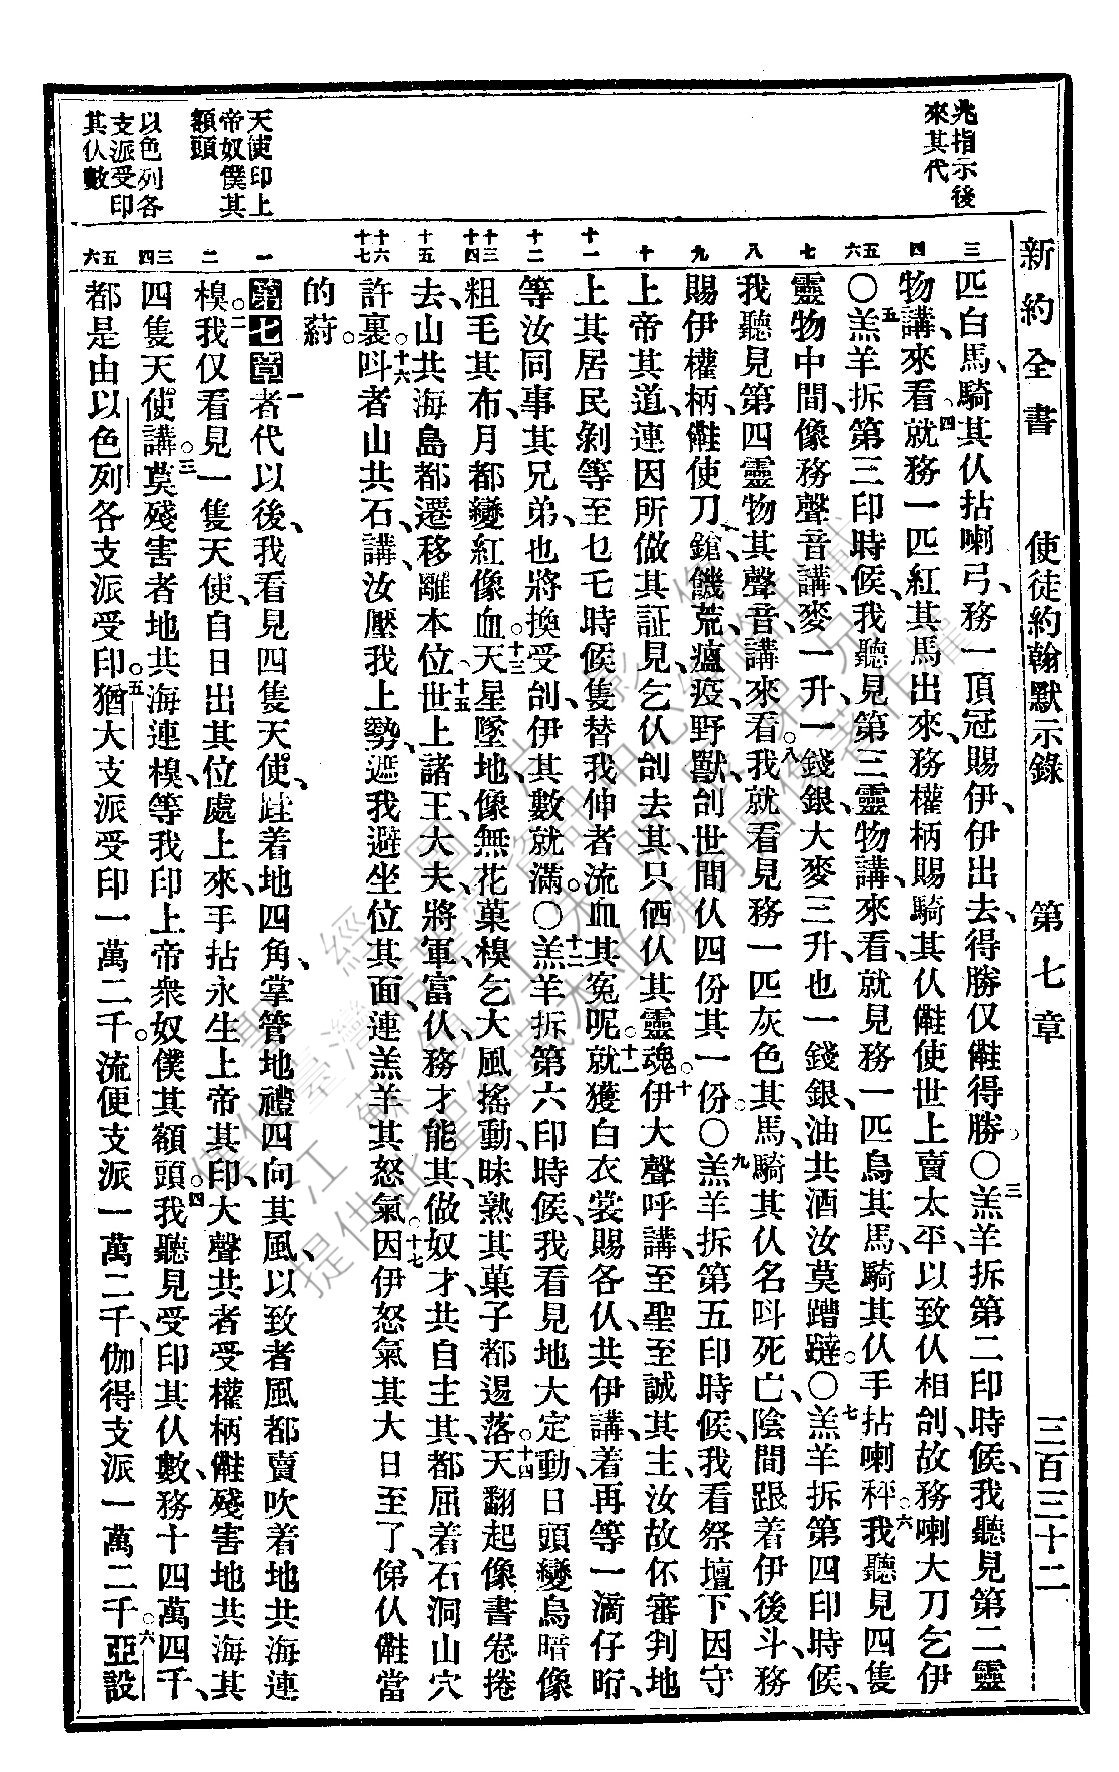 新約全書 使徒約翰默示錄 第七章 三百三十二
兆指示後
來其代
天使印上
帝奴僕其
額頭
以色列各
支派受印
其仈數
三
四
五六
七
八
九
十
十一
十二
十三十四
十五
十六十七
一
二
三四
五六
匹白馬、騎其仈拈喇弓、務一頂冠賜伊、伊出去、得勝仅㒕得勝。○三羔羊拆第二印時候、我聽見第二靈
物講、來看。四就務一匹紅其馬出來、務權柄賜騎其仈㒕使世上賣太平、以致仈相刣、故務喇大刀乞伊
○五羔羊拆第三印時候、我聽見第三靈物講、來看、就見務一匹烏其馬、騎其仈手拈喇秤。六我聽見四隻
靈物中間、像務聲音講、麥一升一錢銀、大麥三升也一錢銀、油共酒汝莫蹧躂。○七羔羊拆第四印時候、
我聽見第四靈物其聲音講、來看。八我就看見務一匹灰色其馬、騎其仈名呌死亡、陰間跟着伊後斗、務
賜伊權柄、㒕使刀、鎗、饑荒、瘟疫、野獸、刣世間仈四份其一份。○九羔羊拆第五印時候、我看祭壇下、因守
上帝其道、連因所做其証見、乞仈刣去其只価仈其靈魂。十伊大聲呼講、至聖至誠其主、汝故伓審判地
上其居民剝、等至乜乇時候、隻替我伸者流血其冤呢。十一就獲白衣裳賜各仈、共伊講、着再等一滴仔昕、
等汝同事其兄弟、也將換受刣、伊其數就滿。○十二羔羊拆第六印時候、我看見地大定動、日頭變烏暗像
粗毛其布、月都變紅像血。十三天星墜地、像無花菓楻乞大風搖動、昧熟其菓子都逿落。十四天翻起像書卷捲
去、山共海島都遷移離本位。十五世上諸王、大夫、將軍、富仈、務才能其、做奴才共自主其、都屈着石洞山穴
許裏。十六呌者山共石、講、汝壓我上勢、遮我避坐位其面、連羔羊其怒氣。十七因伊怒氣其大日至了、俤仈㒕當
的葤。
第七章一者代以後、我看見四隻天使、跬着地四角、掌管地禮四向其風、以致者風都賣吹着地共海連
楻。二我仅看見一隻天使、自日出其位處上來、手拈永生上帝其印、大聲共者受權柄㒕殘害地共海其
四隻天使講。三莫殘害者地共海連楻、等我印上帝眾奴僕其額頭。四我聽見受印其仈數、務十四萬四千、
都是由以色列各支派受印。五猶大支派受印一萬二千。流便支派一萬二千、伽得支派一萬二千。六亞設